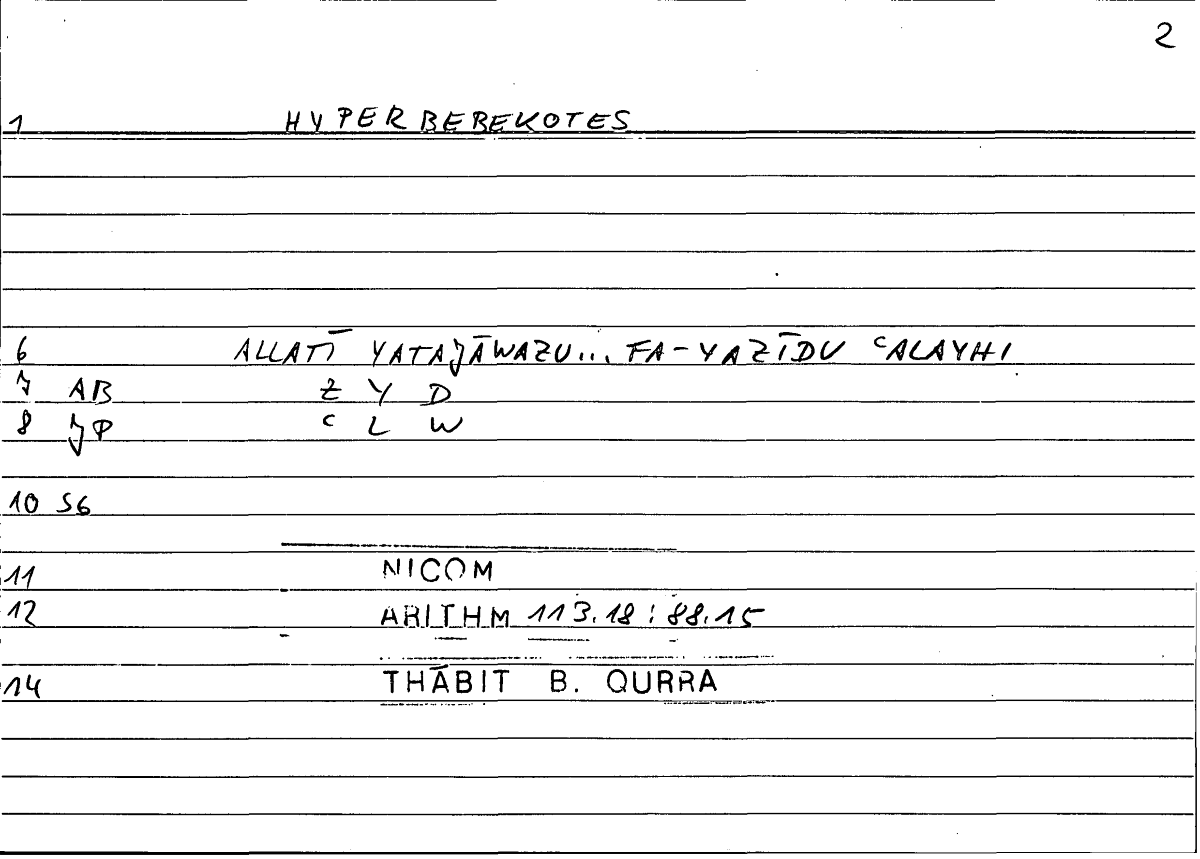 2
1 HYPERBEBEKOTES
6 ALLATĪ YATAJĀWAZU... FA-YAZĪDU ʿALAYHI
7 AB Z Y D
8 JP ʿ L W
10 S6
11 NICOM
12 ARITHM 113.18 : 88.15
14 THĀBIT B. QURRA